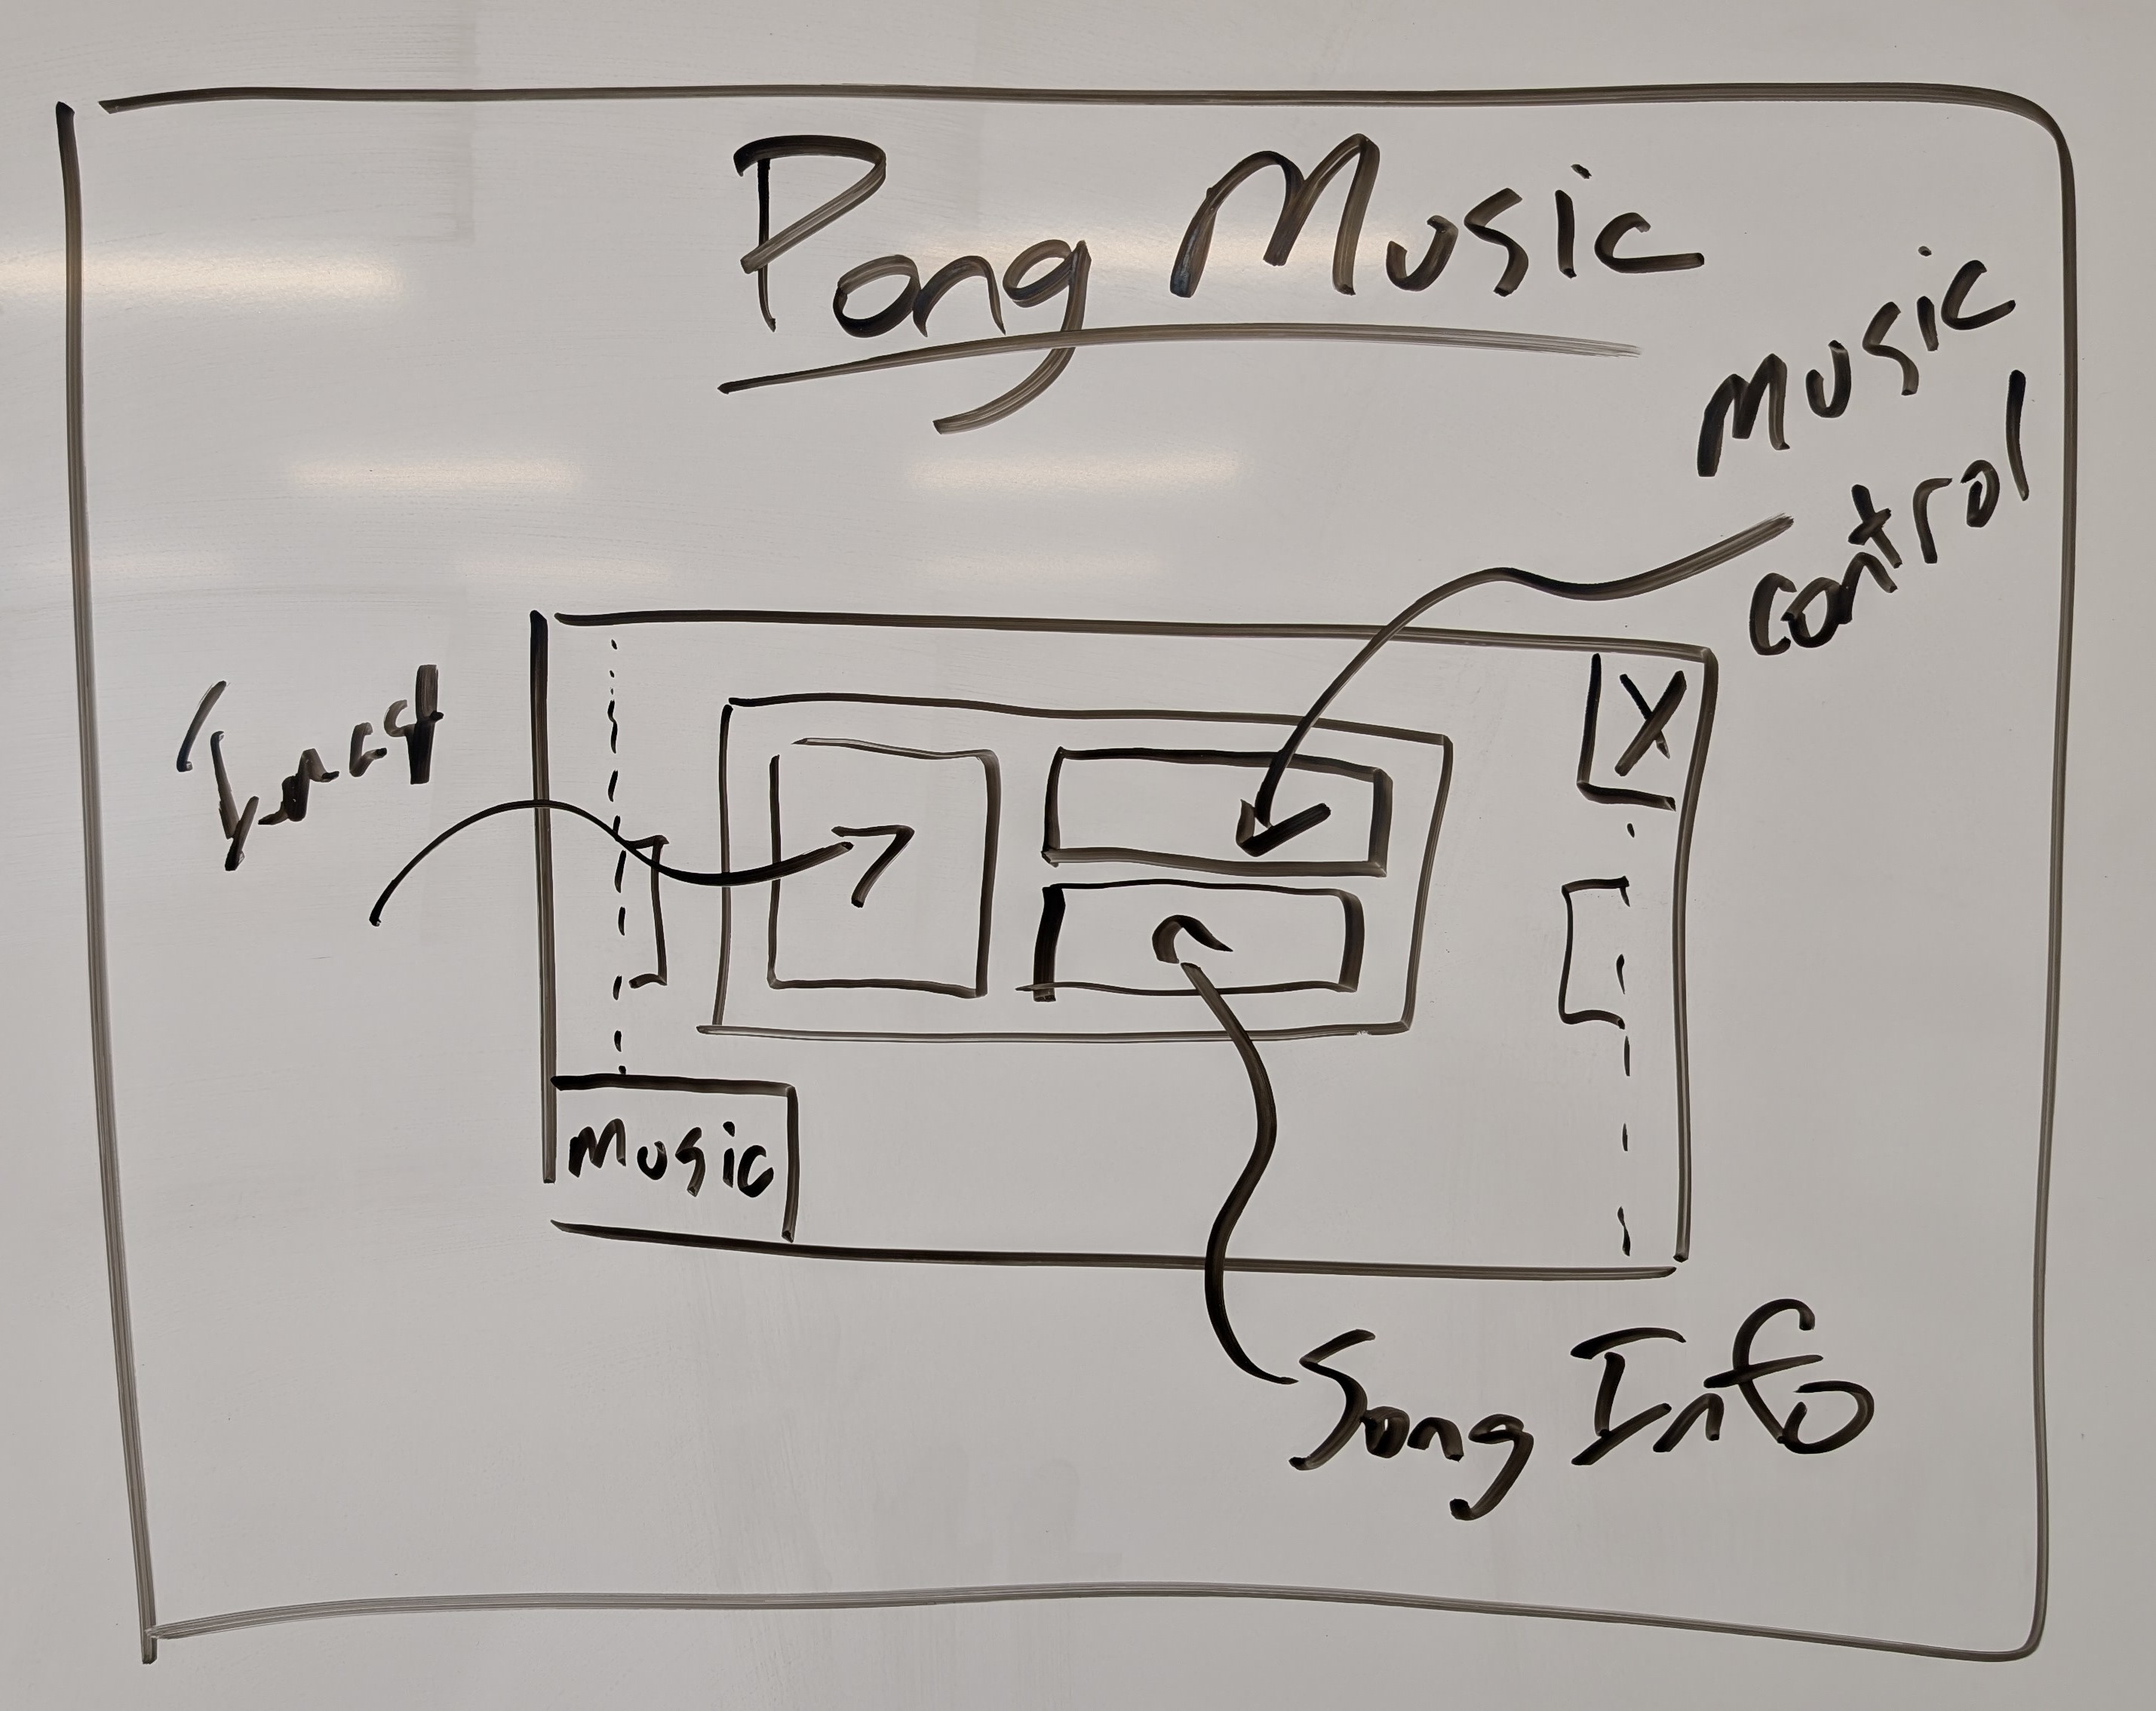 Pong Music
Music
Control
X
Music
Song Info